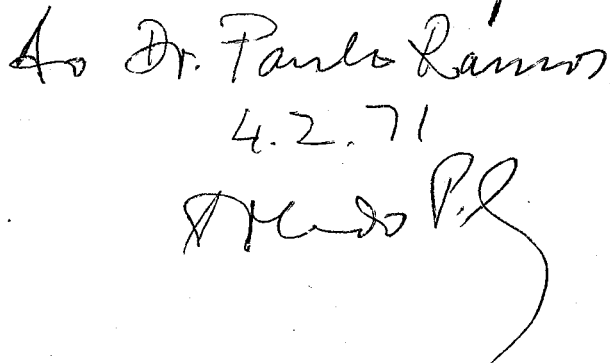 Ao Dr. Paulo Ramos
4.2.71